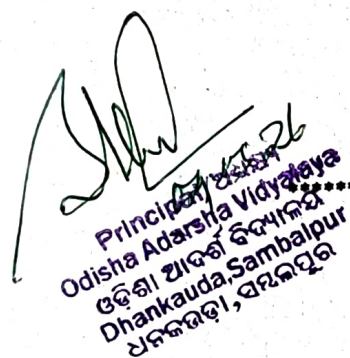 Principal, ଅଧ୍ୟକ୍ଷ
Odisha Adarsha Vidyalaya
ଓଡ଼ିଶା ଆଦର୍ଶ ବିଦ୍ୟାଳୟ
Dhankauda, Sambalpur
ଧନକଉଡ଼ା, ସମ୍ବଲପୁର